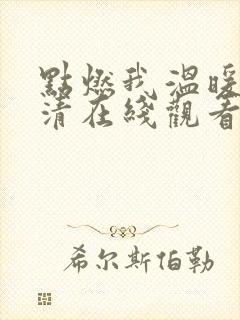 點燃我 溫暖
清在綫觀看
希尔斯伯勒